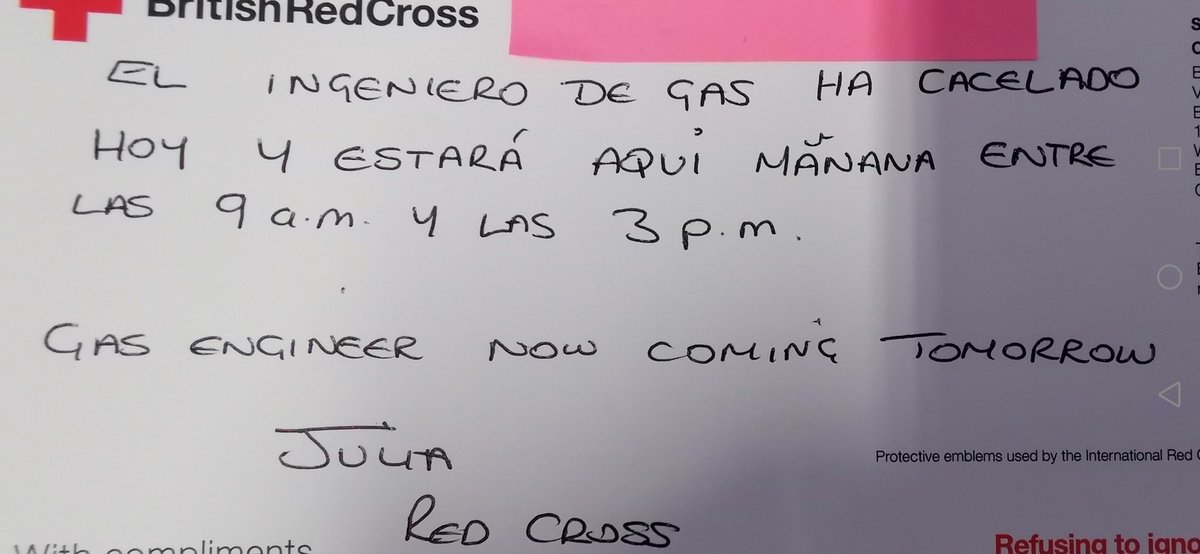 BritishRedCross
EL INGENIERO DE GAS HA CACELADO
HOY Y ESTARÁ AQUI MAÑANA ENTRE
LAS 9 a.m. Y LAS 3 p.m.
GAS ENGINEER NOW COMING TOMORROW
JULIA
RED CROSS
Protective emblems used by the International Red
With compliments
Refusing to